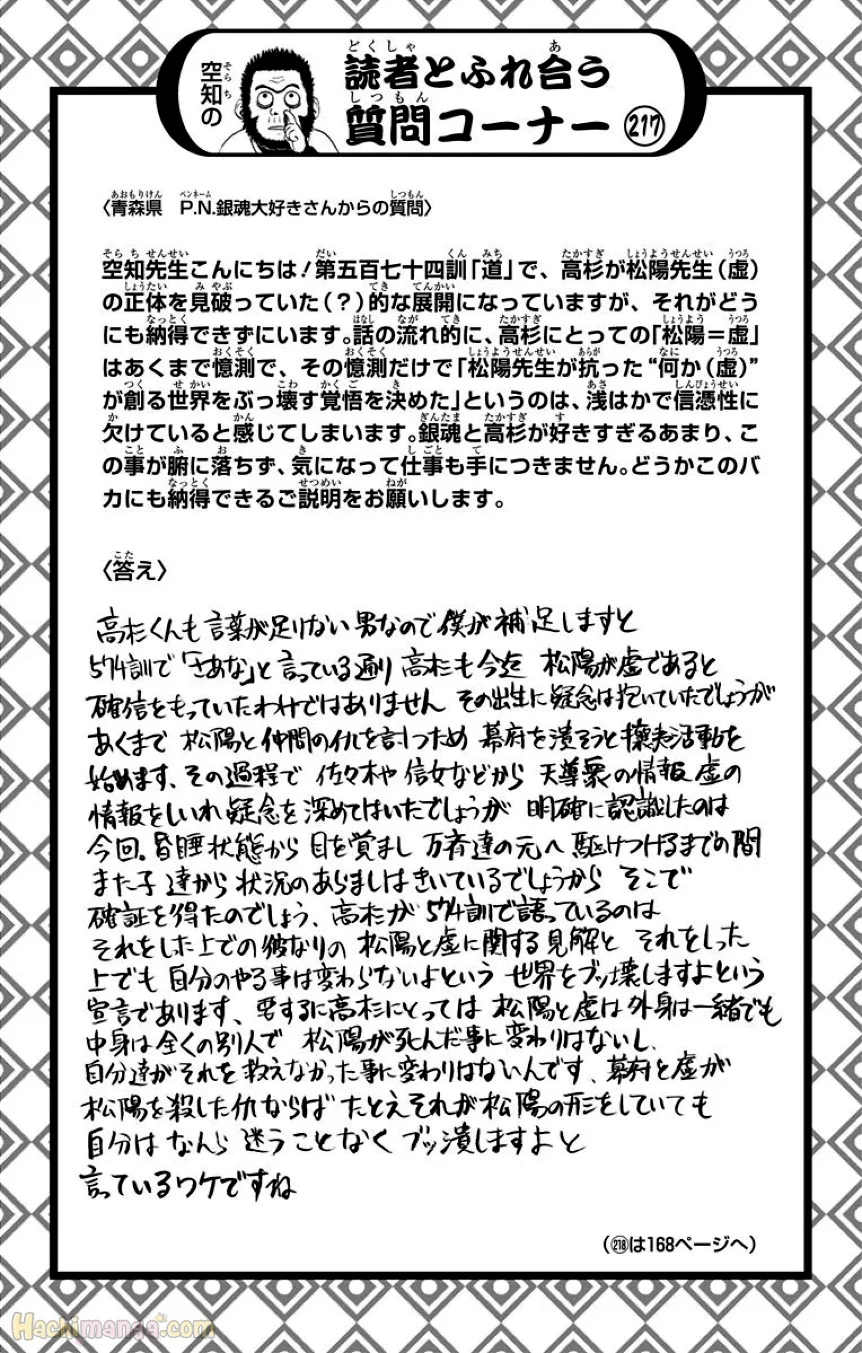 空知の
読者とふれ合う
質問コーナー 217
〈青森県　P.N.銀魂大好きさんからの質問〉
空知先生こんにちは！第五百七十四訓「道」で、高杉が松陽先生（虚）
の正体を見破っていた（？）的な展開になっていますが、それがどう
にも納得できずにいます。話の流れ的に、高杉にとっての「松陽＝虚」
はあくまで憶測で、その憶測だけで「松陽先生が抗った“何か（虚）”
が創る世界をぶっ壊す覚悟を決めた」というのは、浅はかで信憑性に
欠けていると感じてしまいます。銀魂と高杉が好きすぎるあまり、こ
の事が腑に落ちず、気になって仕事も手につきません。どうかこのバ
カにも納得できるご説明をお願いします。
〈答え〉
高杉くんも言葉が足りない男なので僕が補足しますと
574訓で「さあな」と言っている通り高杉も今迄 松陽が虚であると
確信をもっていたわけではありません その出生に疑念は抱いていたでしょうが
あくまで 松陽と仲間の仇を討つため 幕府を潰そうと攘夷活動を
始めます、その過程で 佐々木や信女などから 天導衆の情報 虚の
情報をしいれ疑念を深めてはいたでしょうが 明確に認識したのは
今回。昏睡状態から目を覚まし 万斉達の元へ駆けつけるまでの間
また子達から状況のあらましはきいているでしょうから そこで
確証を得たのでしょう、高杉が574訓で語っているのは
それをした上での彼なりの 松陽と虚に関する見解と それをした
上でも自分のやる事は変わらないよという 世界をブッ壊しますよという
宣言であります、要するに高杉にとっては 松陽と虚は外身は一緒でも
中身は全くの別人で 松陽が死んだ事に変わりはないし、
自分達がそれを救えなかった事に変わりはないんです、幕府と虚が
松陽を殺した仇ならば たとえそれが松陽の形をしていても
自分はなんら迷うことなくブッ潰しますよと
言っているワケですね
（218は168ページへ）
Hachimanga.com